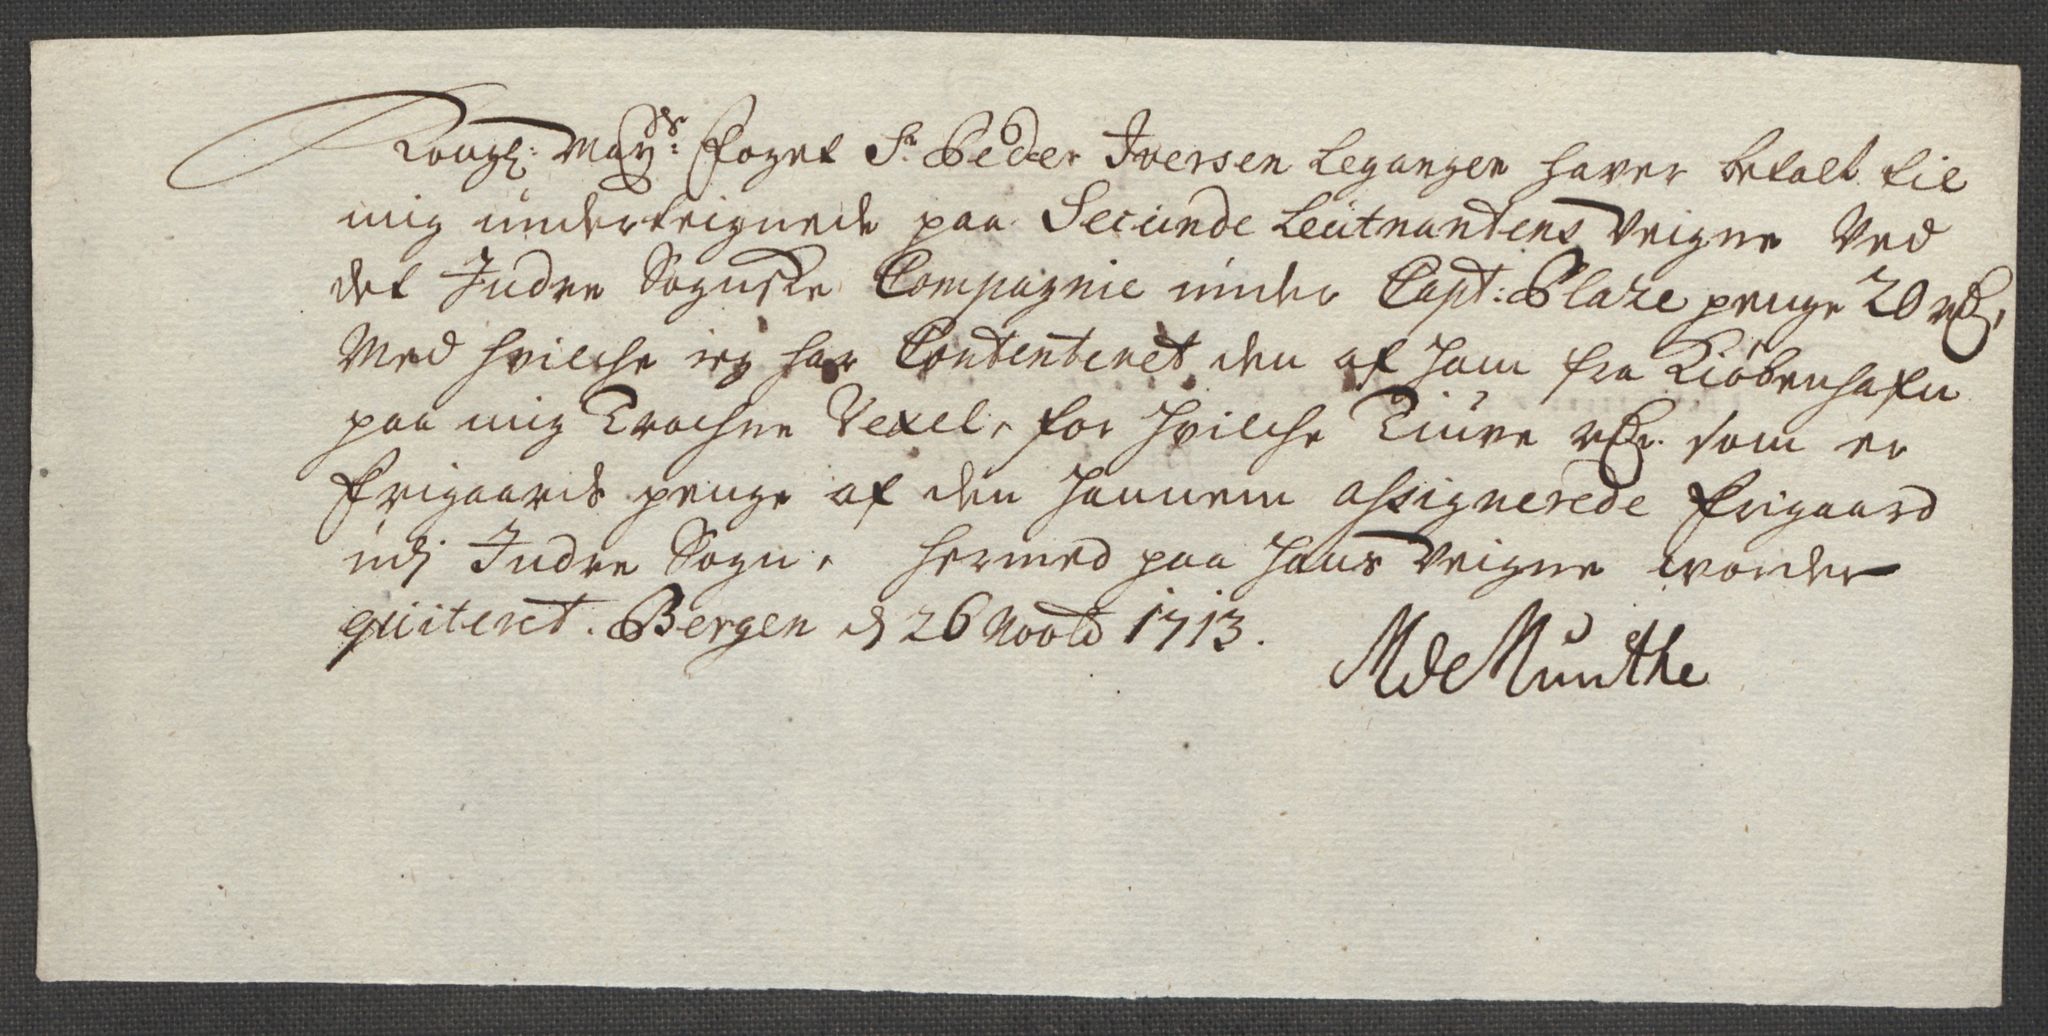 Kongl: May:ds Foget Sr. Peder Iversen Legangen haver betalt til
mig underteignede paa Secunde Leutnantens Veigne Ved
det Indre Sognske Compagnie under Capt: Blaze penge 20 rdr,
Med hvilche ieg har Contenteret den af ham fra Kiøbenhafn
paa mig Trochne Vexel, for hvilche Tiuve rdr. som er
frigaards penge af den hannem assignerede frigaard
udj Indre Sogn, hermed paa hans Veigne worder
quiteret. Bergen d 26 1713.
M de Munthe